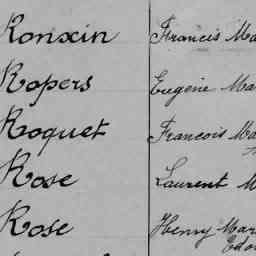 Ronxin Francis Ma
Ropers Eugène Ma
Roquet Francois Ma
Rose Laurent M
Rose Henry Mar
Edo